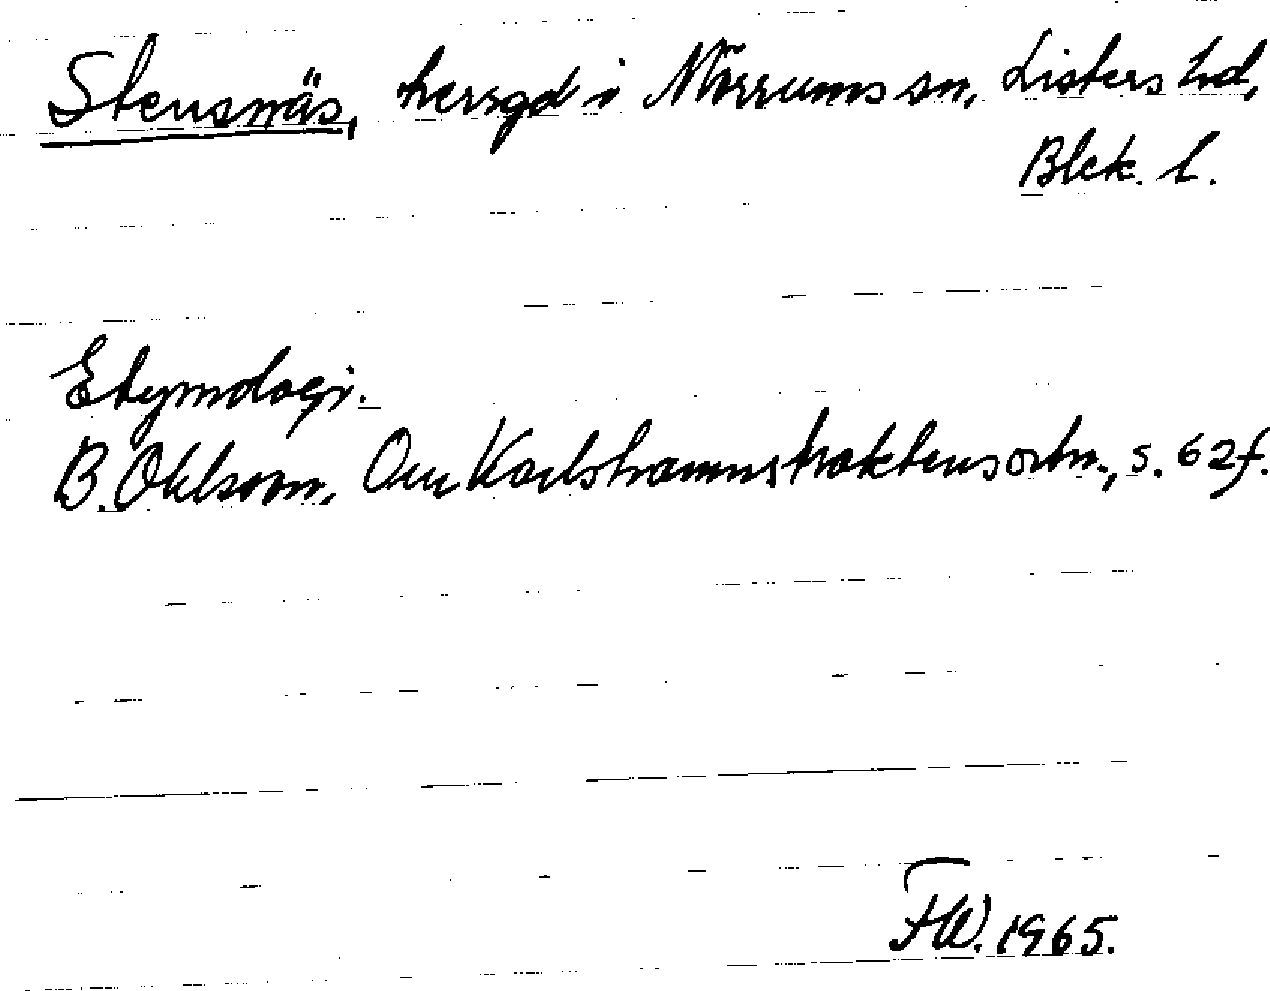 Stensnäs, herrgd i Mörrums sn, Listers hd,
Blek. l.
Etymologi.
B. Ohlsson, Om Karlshamnstraktens ortn., s. 62f.
FW. 1965.